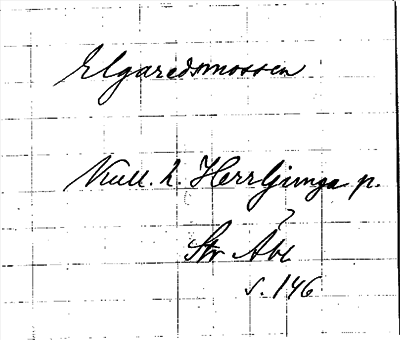 Elgaredsmossen
Kull. h. Herrljunga p.
Str Åbl
s. 146